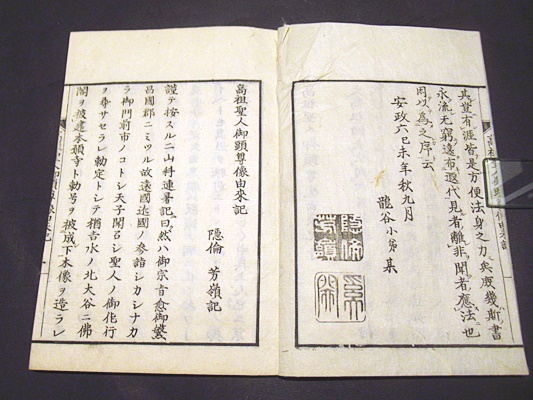 其豈有涯皆是方便法身之力矣庶幾斯書
永流无窮遠布遐代見者離非聞者應法也
因以為之序云
安政六己未年秋九月
龍谷小弟 集
高祖聖人御顕尊像由來記
隠倫 芳嶺記
謹テ按スルニ山科連署記曰然ハ御宗旨愈御繁
昌國郡ニミツル故遠國近國ノ参詣シカシナカ
ラ御門前市ノコトシ天子聞召シ聖人ノ御化行
ヲ尊サセラレ勅定トシテ猶吉水ノ北大谷ニ佛
閣ヲ被建本願寺ト勅号ヲ被成下木像ヲ造ラレ